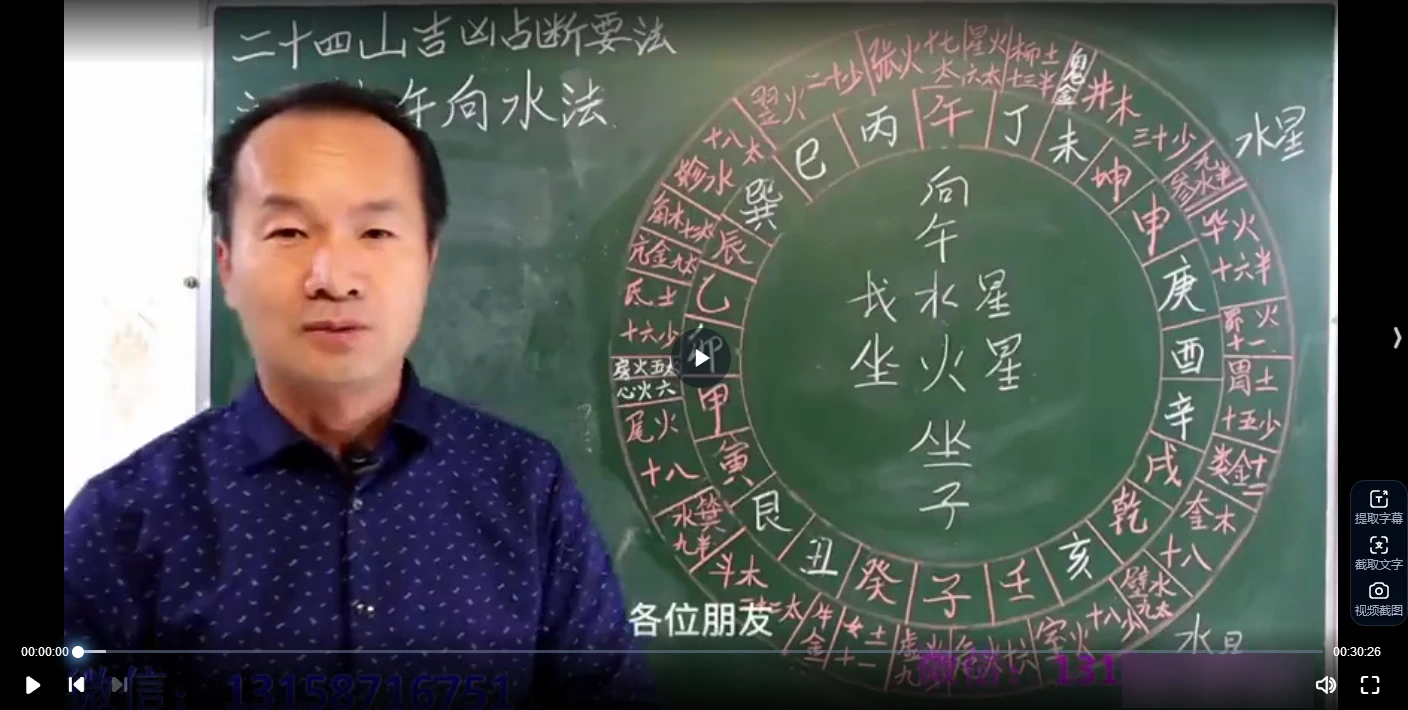 二十四山吉凶占断要法
午向水法
张火十七太
星火六太
柳土十三半
鬼金
井木三十少
翌火二十少
十八太
水
角木十二
亢金九太
氐土十六少
房火五太
心火六
尾火十八
水箕九半
斗木
牛金
女土十一
室火
十八少
壁水九太
奎木十八
娄金十二
胃土十五少
十一
毕火十六半
参水九半
午
丁
未
坤
申
庚
酉
辛
戌
乾
亥
壬
子
癸
丑
艮
寅
甲
卯
乙
辰
巽
巳
丙
水星
向
午
水星
坐火星
坐
子
水星
各位朋友
00:00:00
00:30:26
微信：13158716751
微信：131
提取字幕
截取文字
视频截图